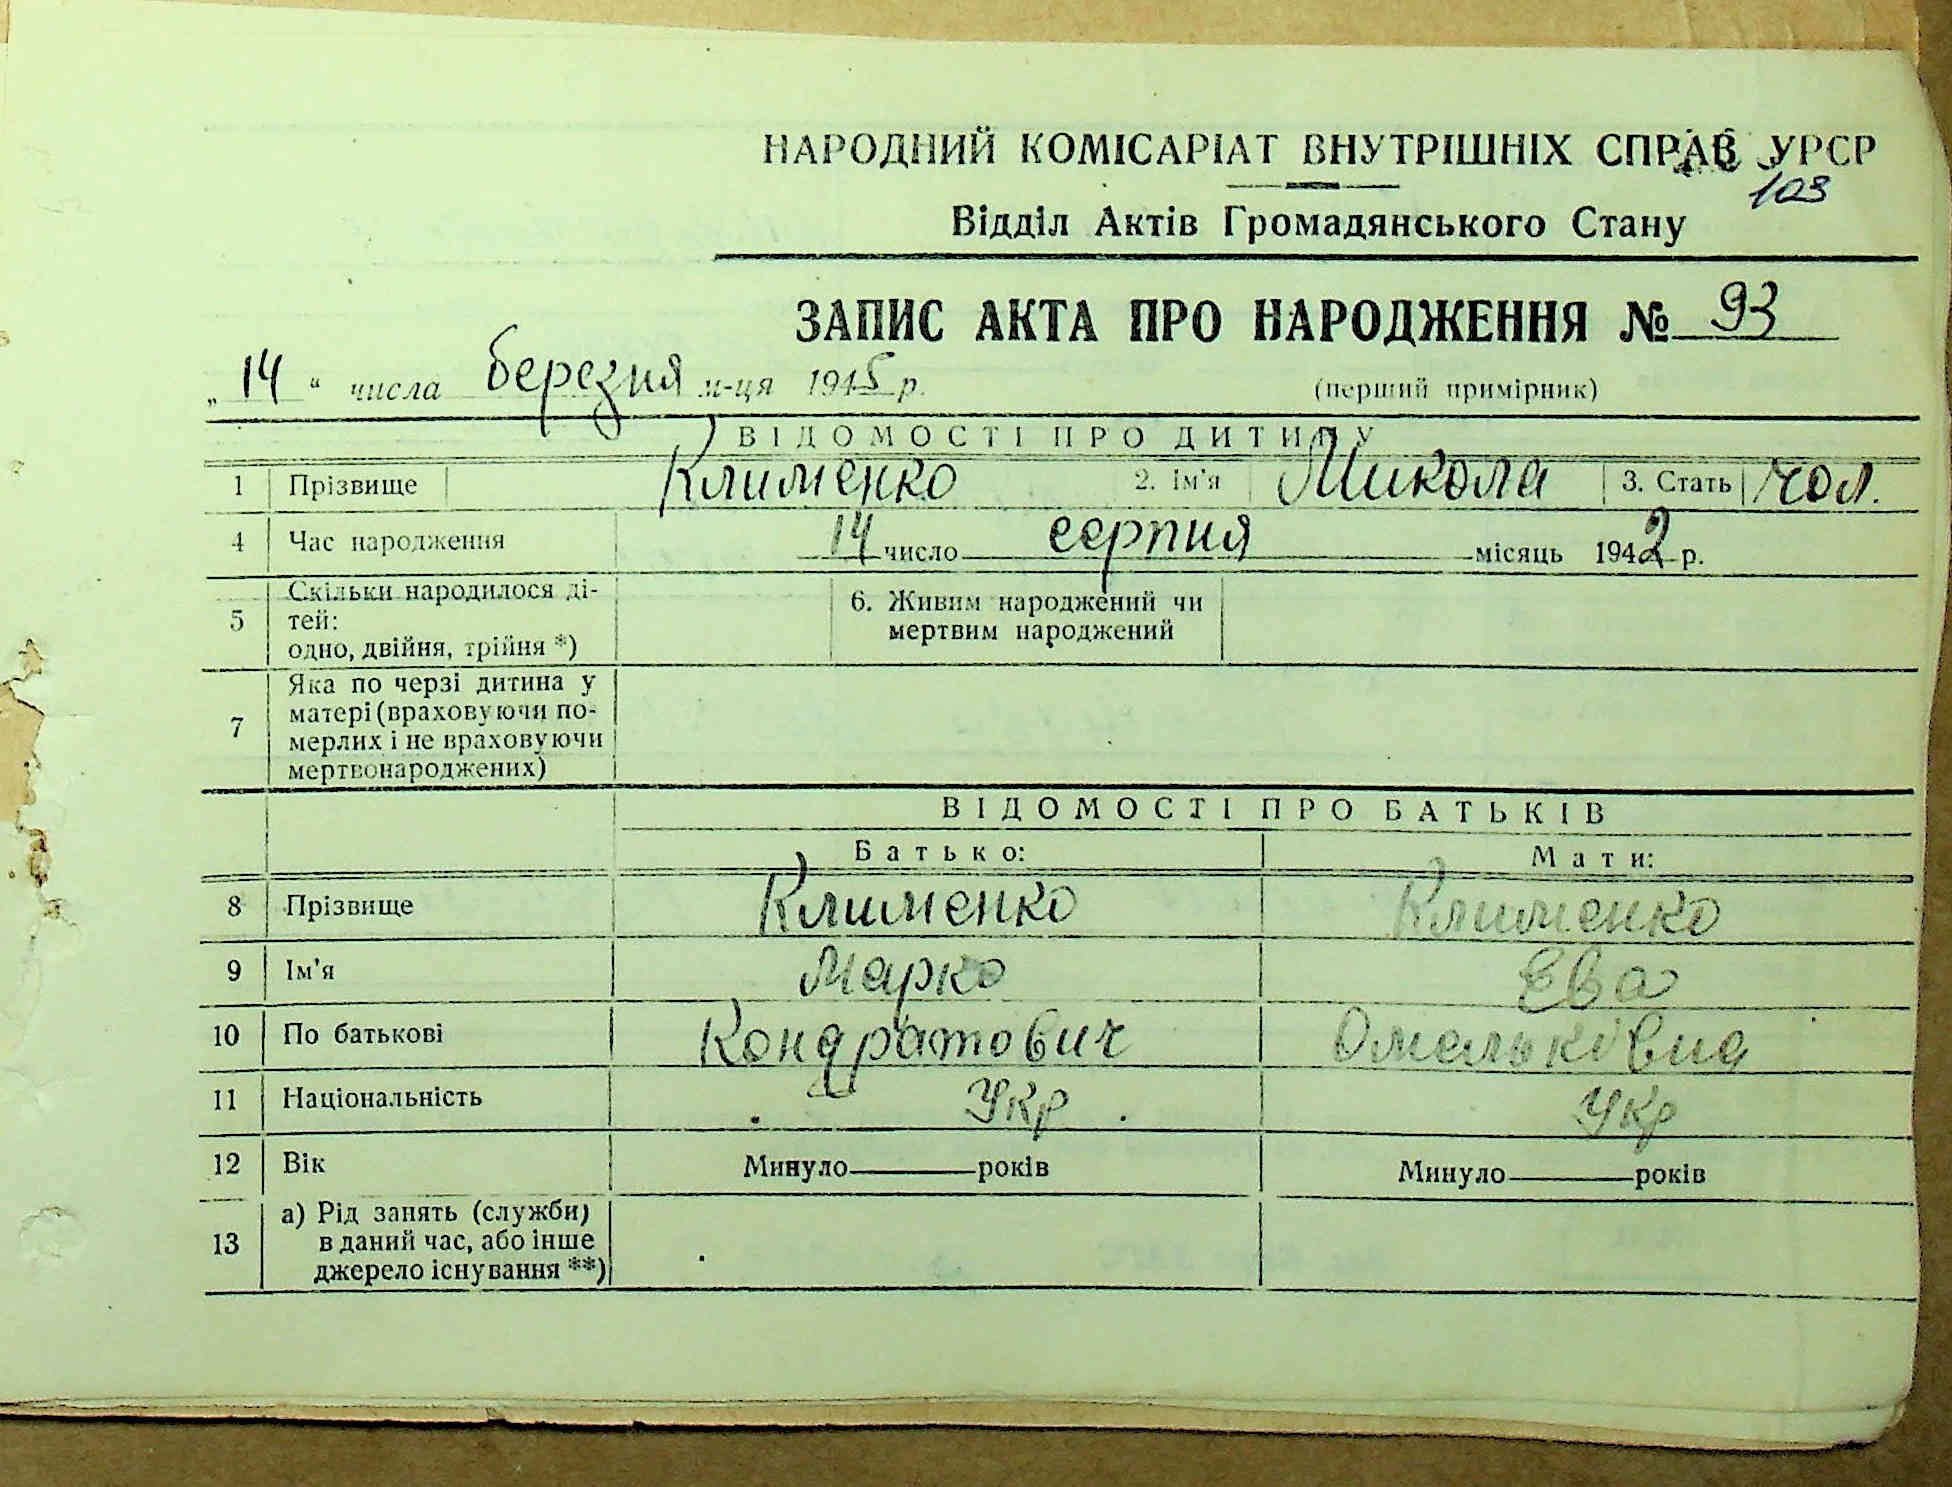 НАРОДНИЙ КОМІСАРІАТ ВНУТРІШНІХ СПРАВ УРСР
103
Відділ Актів Громадянського Стану
ЗАПИС АКТА ПРО НАРОДЖЕННЯ № 93
„14“ числа березня м-ця 1945 р. (перший примірник)
ВІДОМОСТІ ПРО ДИТИНУ
1 Прізвище Клименко 2. Ім'я Микола 3. Стать чол.
4 Час народження 14 число серпня місяць 1942 р.
5 Скільки народилося ді-
тей:
одно, двійня, трійня *)
6. Живим народжений чи
мертвим народжений
7 Яка по черзі дитина у
матері (враховуючи по-
мерлих і не враховуючи
мертвонароджених)
ВІДОМОСТІ ПРО БАТЬКІВ
Батько: Мати:
8 Прізвище Клименко Клименко
9 Ім'я Марко Ева
10 По батькові Кондратович Омельківна
11 Національність Укр Укр
12 Вік Минуло років Минуло років
13 а) Рід занять (служби)
в даний час, або інше
джерело існування **)